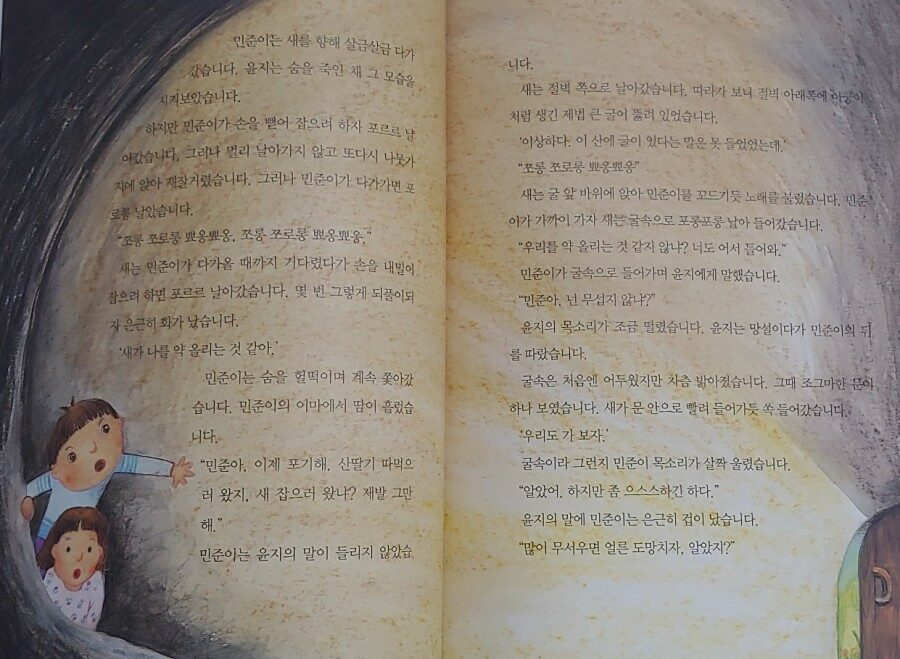 민준이는 새를 향해 살금살금 다가
갔습니다. 윤지는 숨을 죽인 채 그 모습을
지켜보았습니다.
하지만 민준이가 손을 뻗어 잡으려 하자 포르르 날
아갔습니다. 그러나 멀리 날아가지 않고 또다시 나뭇가
지에 앉아 재잘거렸습니다. 그러나 민준이가 다가가면 포
로롱 날았습니다.
“쪼롱 쪼로롱 뾰옹뾰옹, 쪼롱 쪼로롱 뾰옹뾰옹.”
새는 민준이가 다가올 때까지 기다렸다가 손을 내밀어
잡으려 하면 포르르 날아갔습니다. 몇 번 그렇게 되풀이되
자 은근히 화가 났습니다.
‘새가 나를 약 올리는 것 같아.’
민준이는 숨을 헐떡이며 계속 쫓아갔
습니다. 민준이의 이마에서 땀이 흘렀습
니다.
“민준아, 이제 포기해. 산딸기 따먹으
러 왔지, 새 잡으러 왔냐? 제발 그만
해.”
민준이는 윤지의 말이 들리지 않았습
니다.
새는 절벽 쪽으로 날아갔습니다. 따라가 보니 절벽 아래쪽에 아궁이
처럼 생긴 제법 큰 굴이 뚫려 있었습니다.
‘이상하다. 이 산에 굴이 있다는 말은 못 들었었는데.’
“쪼롱 쪼로롱 뾰옹뾰옹”
새는 굴 앞 바위에 앉아 민준이를 꼬드기듯 노래를 불렀습니다. 민준
이가 가까이 가자 새는 굴속으로 포롱포롱 날아 들어갔습니다.
“우리를 약 올리는 것 같지 않냐? 너도 어서 들어와.”
민준이가 굴속으로 들어가며 윤지에게 말했습니다.
“민준아, 넌 무섭지 않냐?”
윤지의 목소리가 조금 떨렸습니다. 윤지는 망설이다가 민준이의 뒤
를 따랐습니다.
굴속은 처음엔 어두웠지만 차츰 밝아졌습니다. 그때 조그마한 문이
하나 보였습니다. 새가 문 안으로 빨려 들어가듯 쏙 들어갔습니다.
‘우리도 가 보자.’
굴속이라 그런지 민준이 목소리가 살짝 울렸습니다.
“알았어. 하지만 좀 으스스하긴 하다.”
윤지의 말에 민준이는 은근히 겁이 났습니다.
“많이 무서우면 얼른 도망치자, 알았지?”